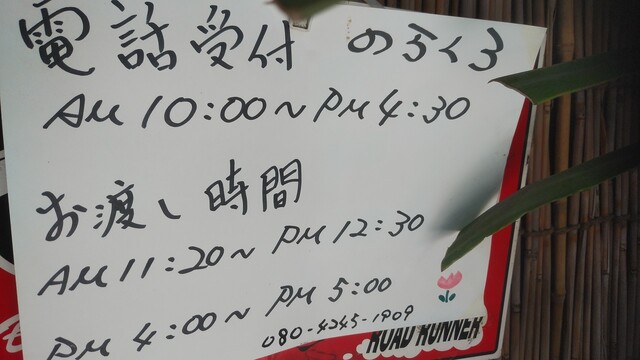 電話受付 のらくろ
AM 10:00～PM 4:30
お渡し時間
AM 11:20～PM 12:30
PM 4:00～PM 5:00
080-4245-1909
ROAD RUNNER